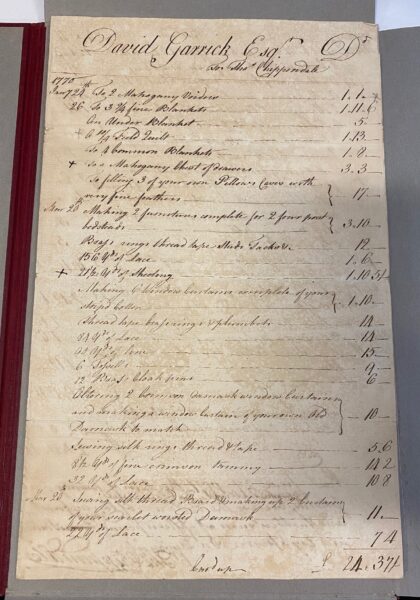 David Garrick Esqr. Dr
To Thos Chippendale
1770
Jany 24 To 2 Mahogany Voiders 1..1..
26 To 3 Blankets 1.11.6
An Under Blanket 5
A Field Quilt 1.13
To 4 Common Blankets 1..8
+ To a Mahogany Chest of drawers 3..3
To filling 3 of your own Pillow Cases with
very fine feathers 17
20 Making 2 furnitures complete for 2 four post
bedsteads 3..10
Brass rings thread tape Studs Tacks &c 12
136 Yds of Lace 1..6
+ 21½ Yds of 1..10.5½
Making 6 Window Curtains complete of your
Strip'd Cotton 1..10
Thread tape brass rings & plumbobs 14
84 Yds of Lace 14
Yds of Line 15
6 Tossells 9
12 Brass Cloak pins 6
Altering 2 Crimson Damask window Curtains
and making a window Curtain of your own Old
Damask to match 10
Sewing silk rings thread & tape 5 6
8½ Yds of fine crimson tammy 14 2
32 Yds of Lace 10 8
20 Sewing silk thread & making up 2 Curtains
of your scarlet worsted Damask 11
22 Yds of Lace 7 4
£ 24..3.7½